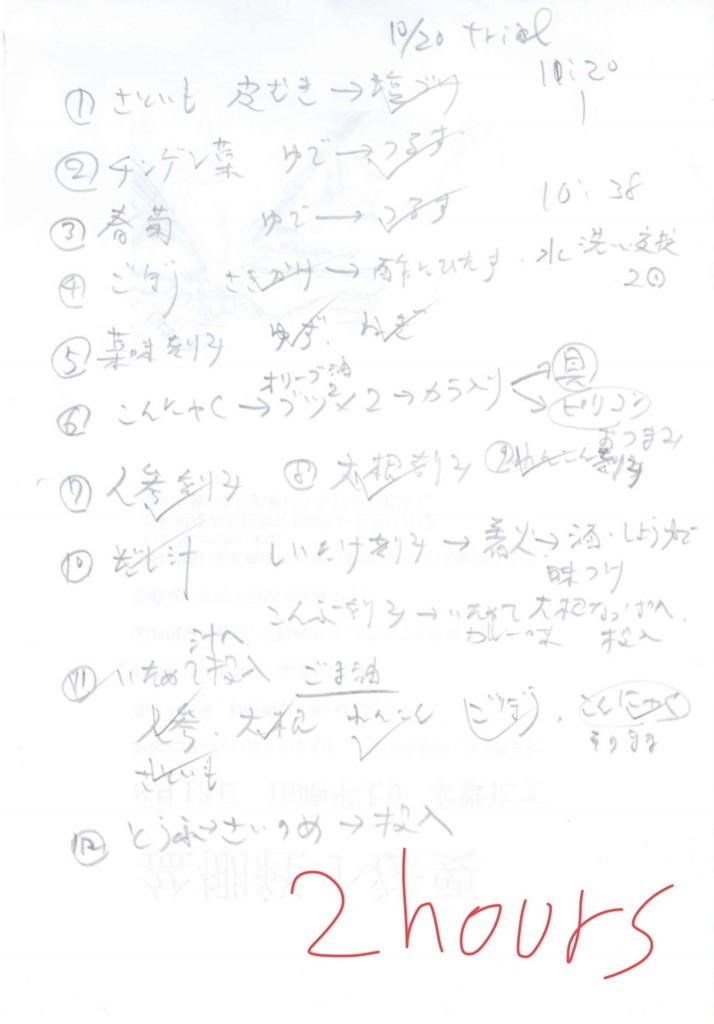 10/20 trial
10:20
① さといも 皮むき → 塩づけ
② チンゲン菜 ゆで → つるす
③ 春菊 ゆで → つるす
10:38
④ ごぼう ささがけ → 酢にひたす
水洗い交換
2回
⑤ 薬味刻み ゆず、ねぎ
オリーブ油
⑥ こんにゃく → ブツ×2 → カラ入り
具
ピリコン
おつまみ
⑦ 人参刻み ⑧ 大根刻み ⑨ れんこん刻み
⑩ だし汁 しいたけ刻み → 着火 → 酒・しょうゆで
味つけ
こんぶ刻み → いためて 大根なっぱへ
カレー味 投入
汁へ
⑪ いためて投入 ごま油
人参、大根 れんこん ごぼう、こんにゃく
そのまま
さといも
⑫ とうふ さいのめ → 投入
2 hours